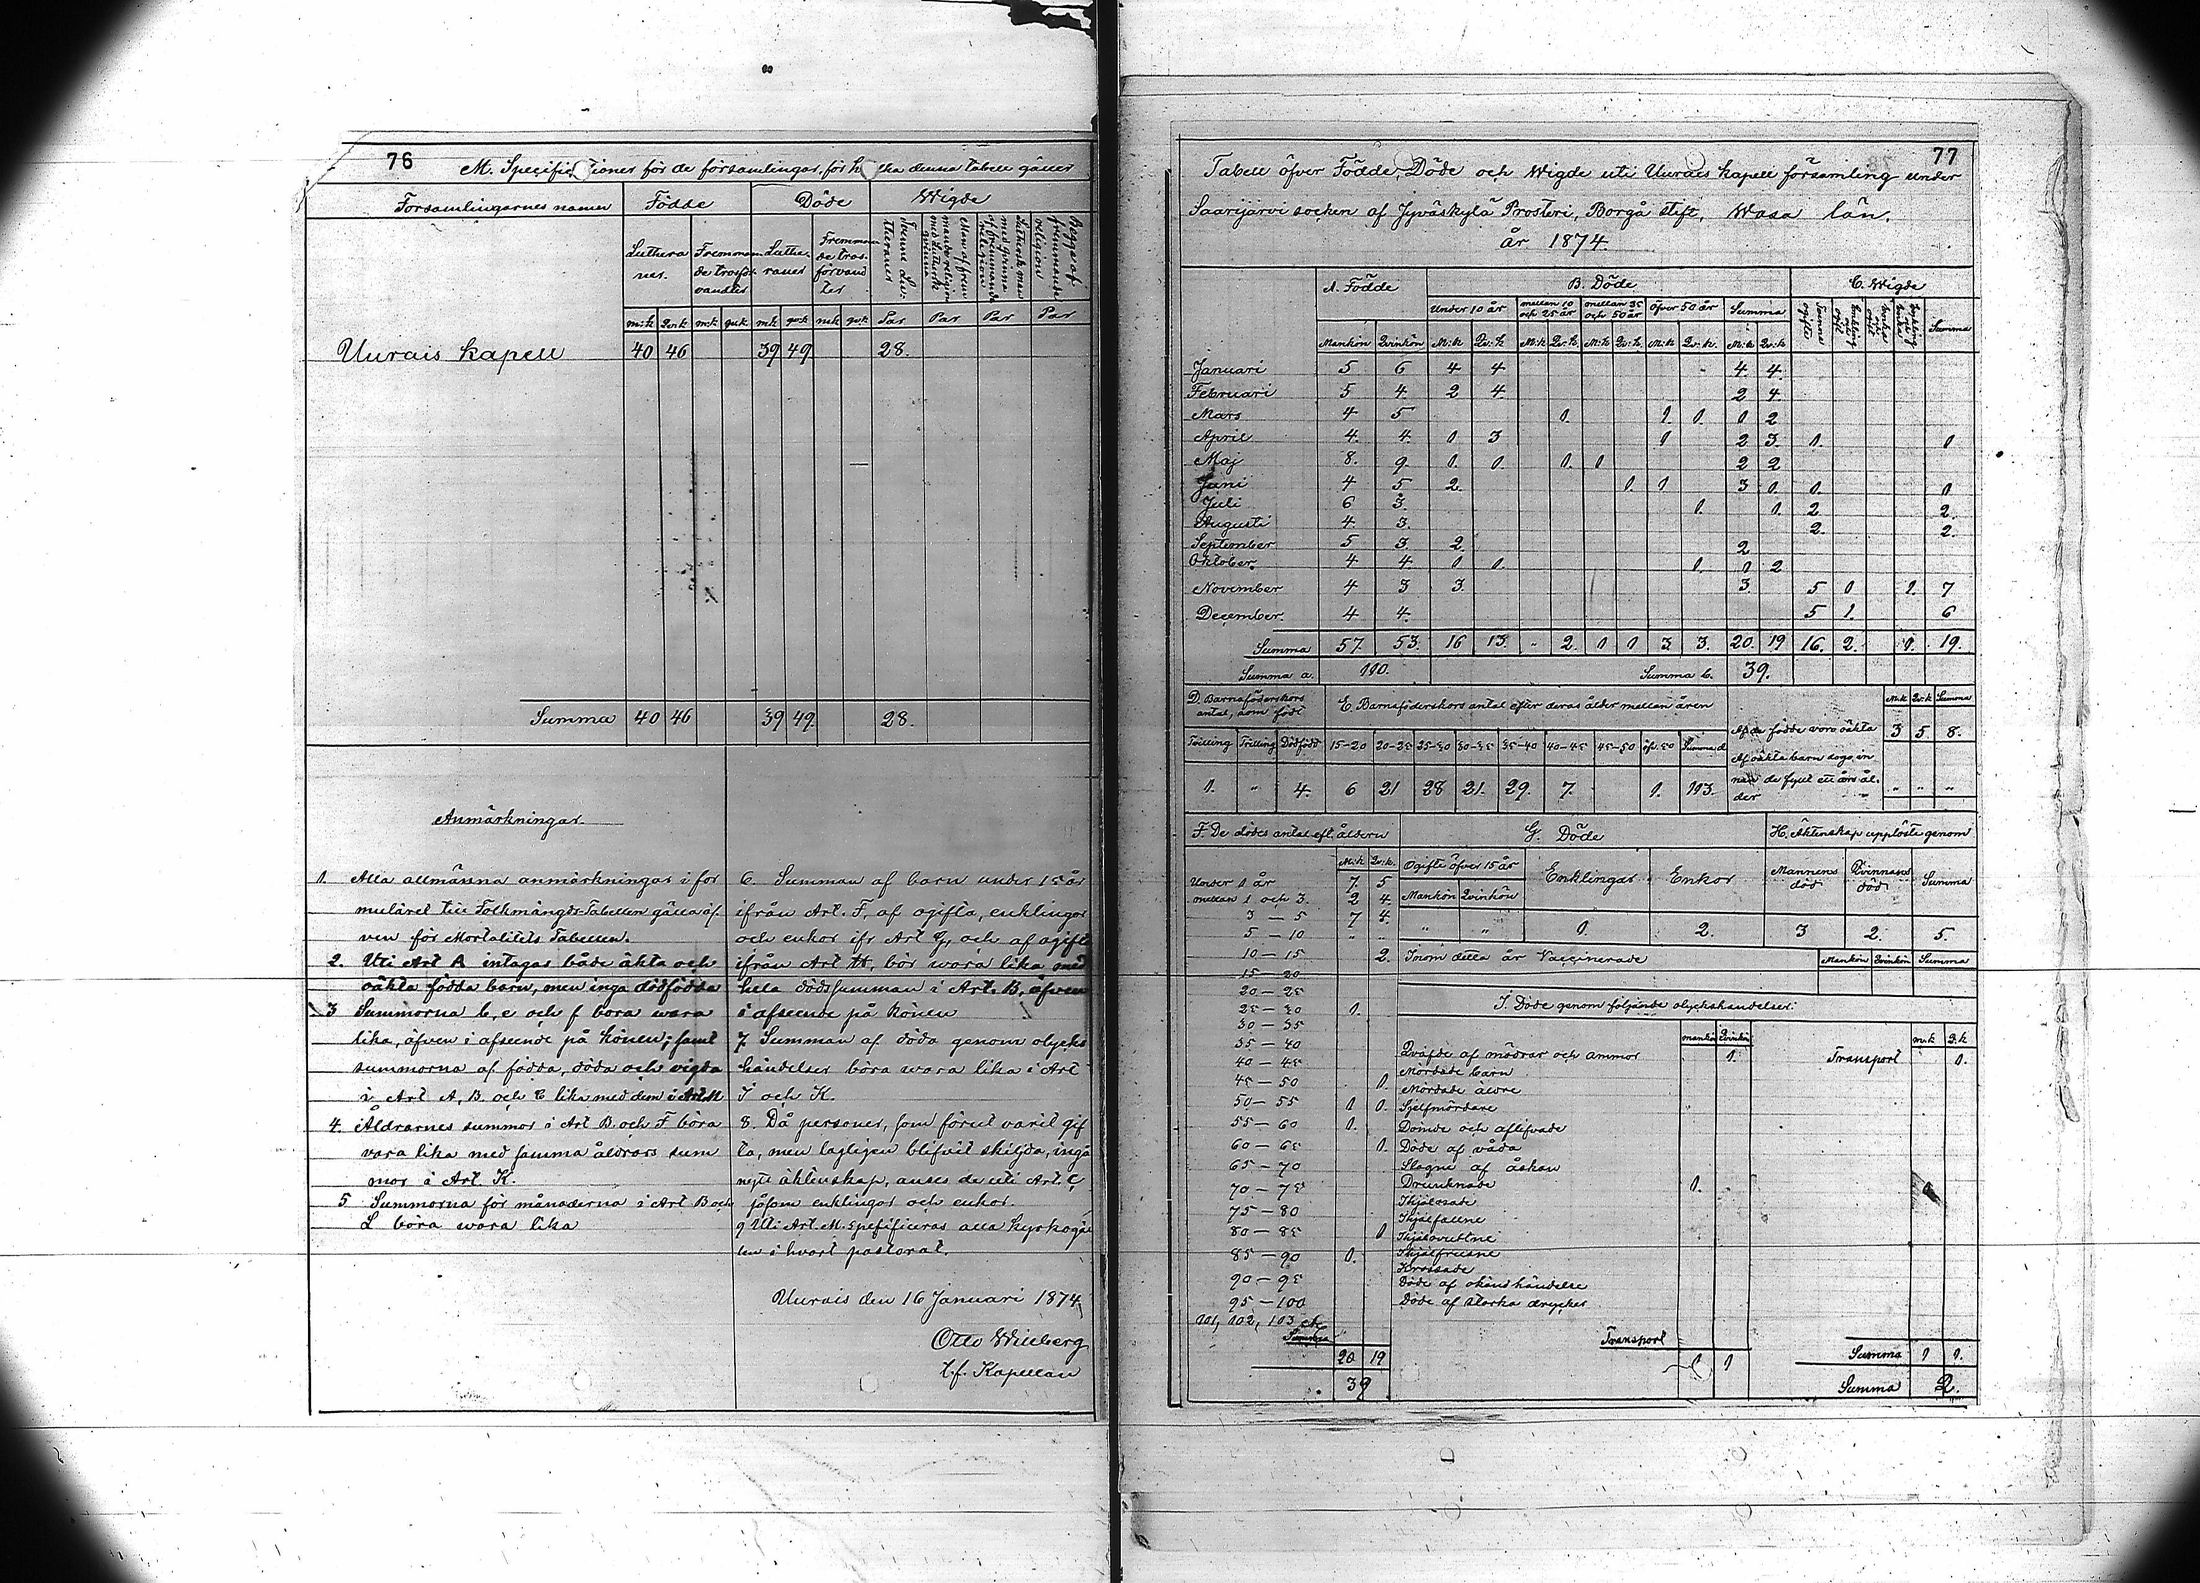 76
M. Specificationer för de församlingar, för hvilka denna tabell gäller
Församlingarnes namn Födde Döde Wigde
Luthera
ner. Fremman
de trosför
vandter Luthe
raner Fremman
de tros
förvand
ter
m:k qv:k m:k qv:k m:k qv:k m:k qv:k Par Par Par Par
Uurais kapell 40 46 39 49 28.
Summa 40 46 39 49 28.
Anmärkningar
1. Alla allmänna anmärkningar i for
muläret till Folkmängds-Tabellen gälla äf
ven för Mortalitets Tabellen.
2. Uti Art A intagas både äkta och
oäkta födda barn, men inga dödfödda
3 Summorna b, e och f böra wara
lika, äfven i afseende på könen; samt
summorna af födda, döda och vigda
i Art A, B och C lika med dem i Art M
4. Åldrarnes summor i Art B och F böra
vara lika med samma åldrars sum
mor i Art K.
5 Summorna för månaderna i Art B och
L böra wara lika
6. Summan af barn under 15 år
ifrån Art. F, af ogifta, enklingar
och enkor ifr Art G, och af ogifta
ifrån Art H, bör wara lika med
hela dödssumman i Art. B, äfven
i afseende på könen
7. Summan af döda genom olycks
händelser böra wara lika i Art
I och K.
8. Då personer, som förut varit gif
ta, men lagligen blifvit skiljda, ingå
nytt äktenskap, anses de uti Art. C
såsom enklingar och enkor.
9 Uti Art. M. spesificeras alla kyrkogäl
len i hvart pastorat.
Uurais den 16 Januari 1874
Otto Wilberg
t.f. Kapellan
77
Tabell öfver Födde, Döde och Wigde uti Uurais kapell församling under
Saarijärvi socken af Jyväskylä Prosteri, Borgå stift, Wasa län.
år 1874.
A. Födde B. Döde C. Wigde
Under 10 år mellan 10
och 25 år mellan 25
och 50 år öfver 50 år Summa Summa
Mankön Qvinkön M:k Qv:k M:k Qv:k M:k Qv:k M:k Qv:k M:k Qv:k
Januari 5 6 4 4 4 4
Februari 5 4 2 4 2 4
Mars 4 5 1. 1. 1. 1 2
April 4. 4. 1 3 1 2 3 1. 1
Maj 8. 9. 1. 1. 1. 1 2 2
Juni 4 5 2. 1. 1 3 1. 1. 1
Juli 6 3. 1. 1. 2 2.
Augusti 4. 3. 2. 2.
September 5 3. 2. 2
Oktober 4 4. 1 1. 1. 1 2
November 4 3 3. 3. 5 1 1. 7
December. 4 4. 5 1. 6
Summa 57. 53. 16 13. " 2. 1 1 3 3. 20. 19 16. 2. 1. 19.
Summa a. 110. Summa b. 39.
D. Barnaföderskors
antal, som födt E. Barnaföderskors antal efter deras ålder mellan åren M:k Qv:k Summa
Tvilling Trilling Dödfödt 15-20 20-25 25-30 30-35 35-40 40-45 45-50 öfv. 50 Summa d.
1. " 4. 6 21 28 21. 29. 7. 1. 113.
Af de födde woro oäkta 3 5 8.
Af oäkta barn dogo in
nan de fyllt ett års ål-
der " " "
F. De dödes antal eft. åldern G. Döde H. Äktenskap upplöste genom
M:k Qv:k. Ogifte öfver 15 år Enklingar Enkor Mannens
död Qvinnans
död Summa
Mankön Qvinkön
" " 1. 2. 3 2. 5.
Under 1 år 7. 5
mellan 1 och 3. 2 4.
3 — 5 7 4.
5 — 10 " "
10 — 15 2.
15 — 20
20 — 25
25 — 30 1.
30 — 35
35 — 40
40 — 45
45 — 50 1.
50 — 55 1 1.
55 — 60 1.
60 — 65 1.
65 — 70
70 — 75
75 — 80
80 — 85 1
85 — 90 1.
90 — 95
95 — 100
101, 102, 103 etc
Summa
20 19
39
Inom detta år Vaccinerade Mankön Qvinkön Summa
I. Döde genom följande olyckshändelser.
mankön Qvinkön m:k Q.k
Qväfde af mödrar och ammor 1. Transport 1.
Mördade barn
Mördade äldre
Sjelfmördare
Dömde och aflifvade
Döde af våda
Slagne af åskan
Drunknade 1.
Ihjälosade
Ihjälfallne
Ihjälsvultne
Ihjälfrusne
Krossade
Döde af okänd händelse
Döde af starka drycker
Transport 1 1
Summa 1 1.
Summa 2.